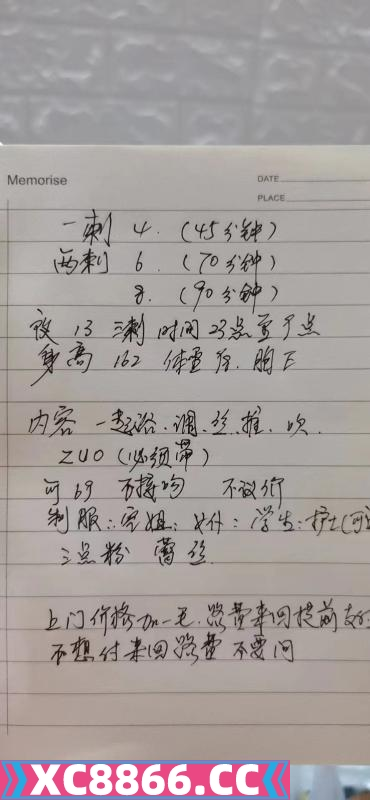 Memorise
DATE
PLACE
一刺 4. (45分钟)
两刺 6. (70分钟)
8. (90分钟)
夜 13 三刺 时间 23点至7点
身高 162 体重 胸F
内容 一起浴. 调. 丝. 推. 吹.
ZUO (必须带)
可69 不接吻 不议价
制服: 空姐: 女仆: 学生: 护士(可
三点粉 蕾丝
上门价格加一毛. 路费来回提前支付
不想付来回路费 不要问
XC8866.CC